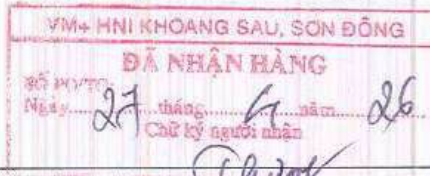 VM+ HNI KHOANG SAU, SƠN ĐỒNG
ĐÃ NHẬN HÀNG
SỐ PO/TO:
Ngày 27 tháng 4 năm 26
Chữ ký người nhận